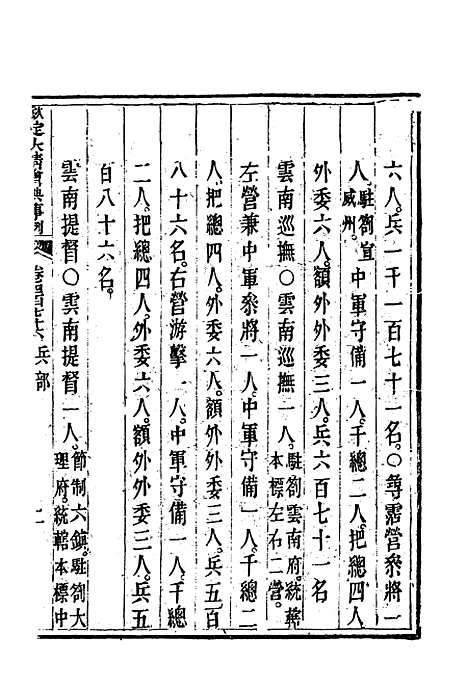 六人。兵一千一百七十一名。〇尋霑營參將一
人。駐劄宣威州。中軍守備一人。千總二人。把總四人。
外委六人。額外外委三人。兵六百七十一名
雲南巡撫〇雲南巡撫一人。駐劄雲南府。統轄本標左右二營。
左營兼中軍參將一人。中軍守備一人。千總二
人。把總四人。外委六人。額外外委三人。兵五百
八十六名。右營游擊一人。中軍守備一人。千總
二人。把總四人。外委六人。額外外委三人。兵五
百八十六名。
雲南提督〇雲南提督一人。節制六鎮。駐劄大理府。統轄本標中
欽定大清會典事例 卷 兵部